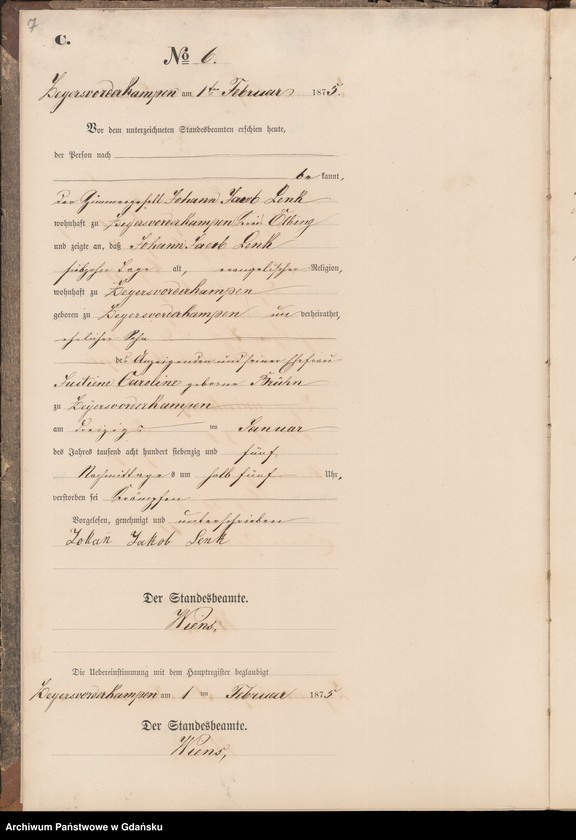 7
C.
No 6.
Zeyersvorderkampen am 1ten Februar 1875.
Vor dem unterzeichneten Standesbeamten erschien heute,
der Person nach
bekannt,
der Zimmergesell Johann Jacob Lenk
wohnhaft zu Zeyersvorderkampen Elbing
und zeigte an, daß Johann Jacob Lenk
siebzehn Tage alt, evangelischer Religion,
wohnhaft zu Zeyersvorderkampen
geboren zu Zeyersvorderkampen un verheirathet,
ehelicher Sohn
des Anzeigenden und seiner Ehefrau
Caroline geborne
zu Zeyersvorderkampen
am dreizigs ten Januar
des Jahres tausend acht hundert siebenzig und fünf
Nachmittags um halb fünf Uhr,
verstorben sei Krämpfen
Vorgelesen, genehmigt und unterschrieben
Johan Jakob Lenk
Der Standesbeamte.
Wiens,
Die Uebereinstimmung mit dem Hauptregister beglaubigt
Zeyersvorderkampen am 1 ten Februar 1875
Der Standesbeamte.
Wiens,
Archiwum Państwowe w Gdańsku